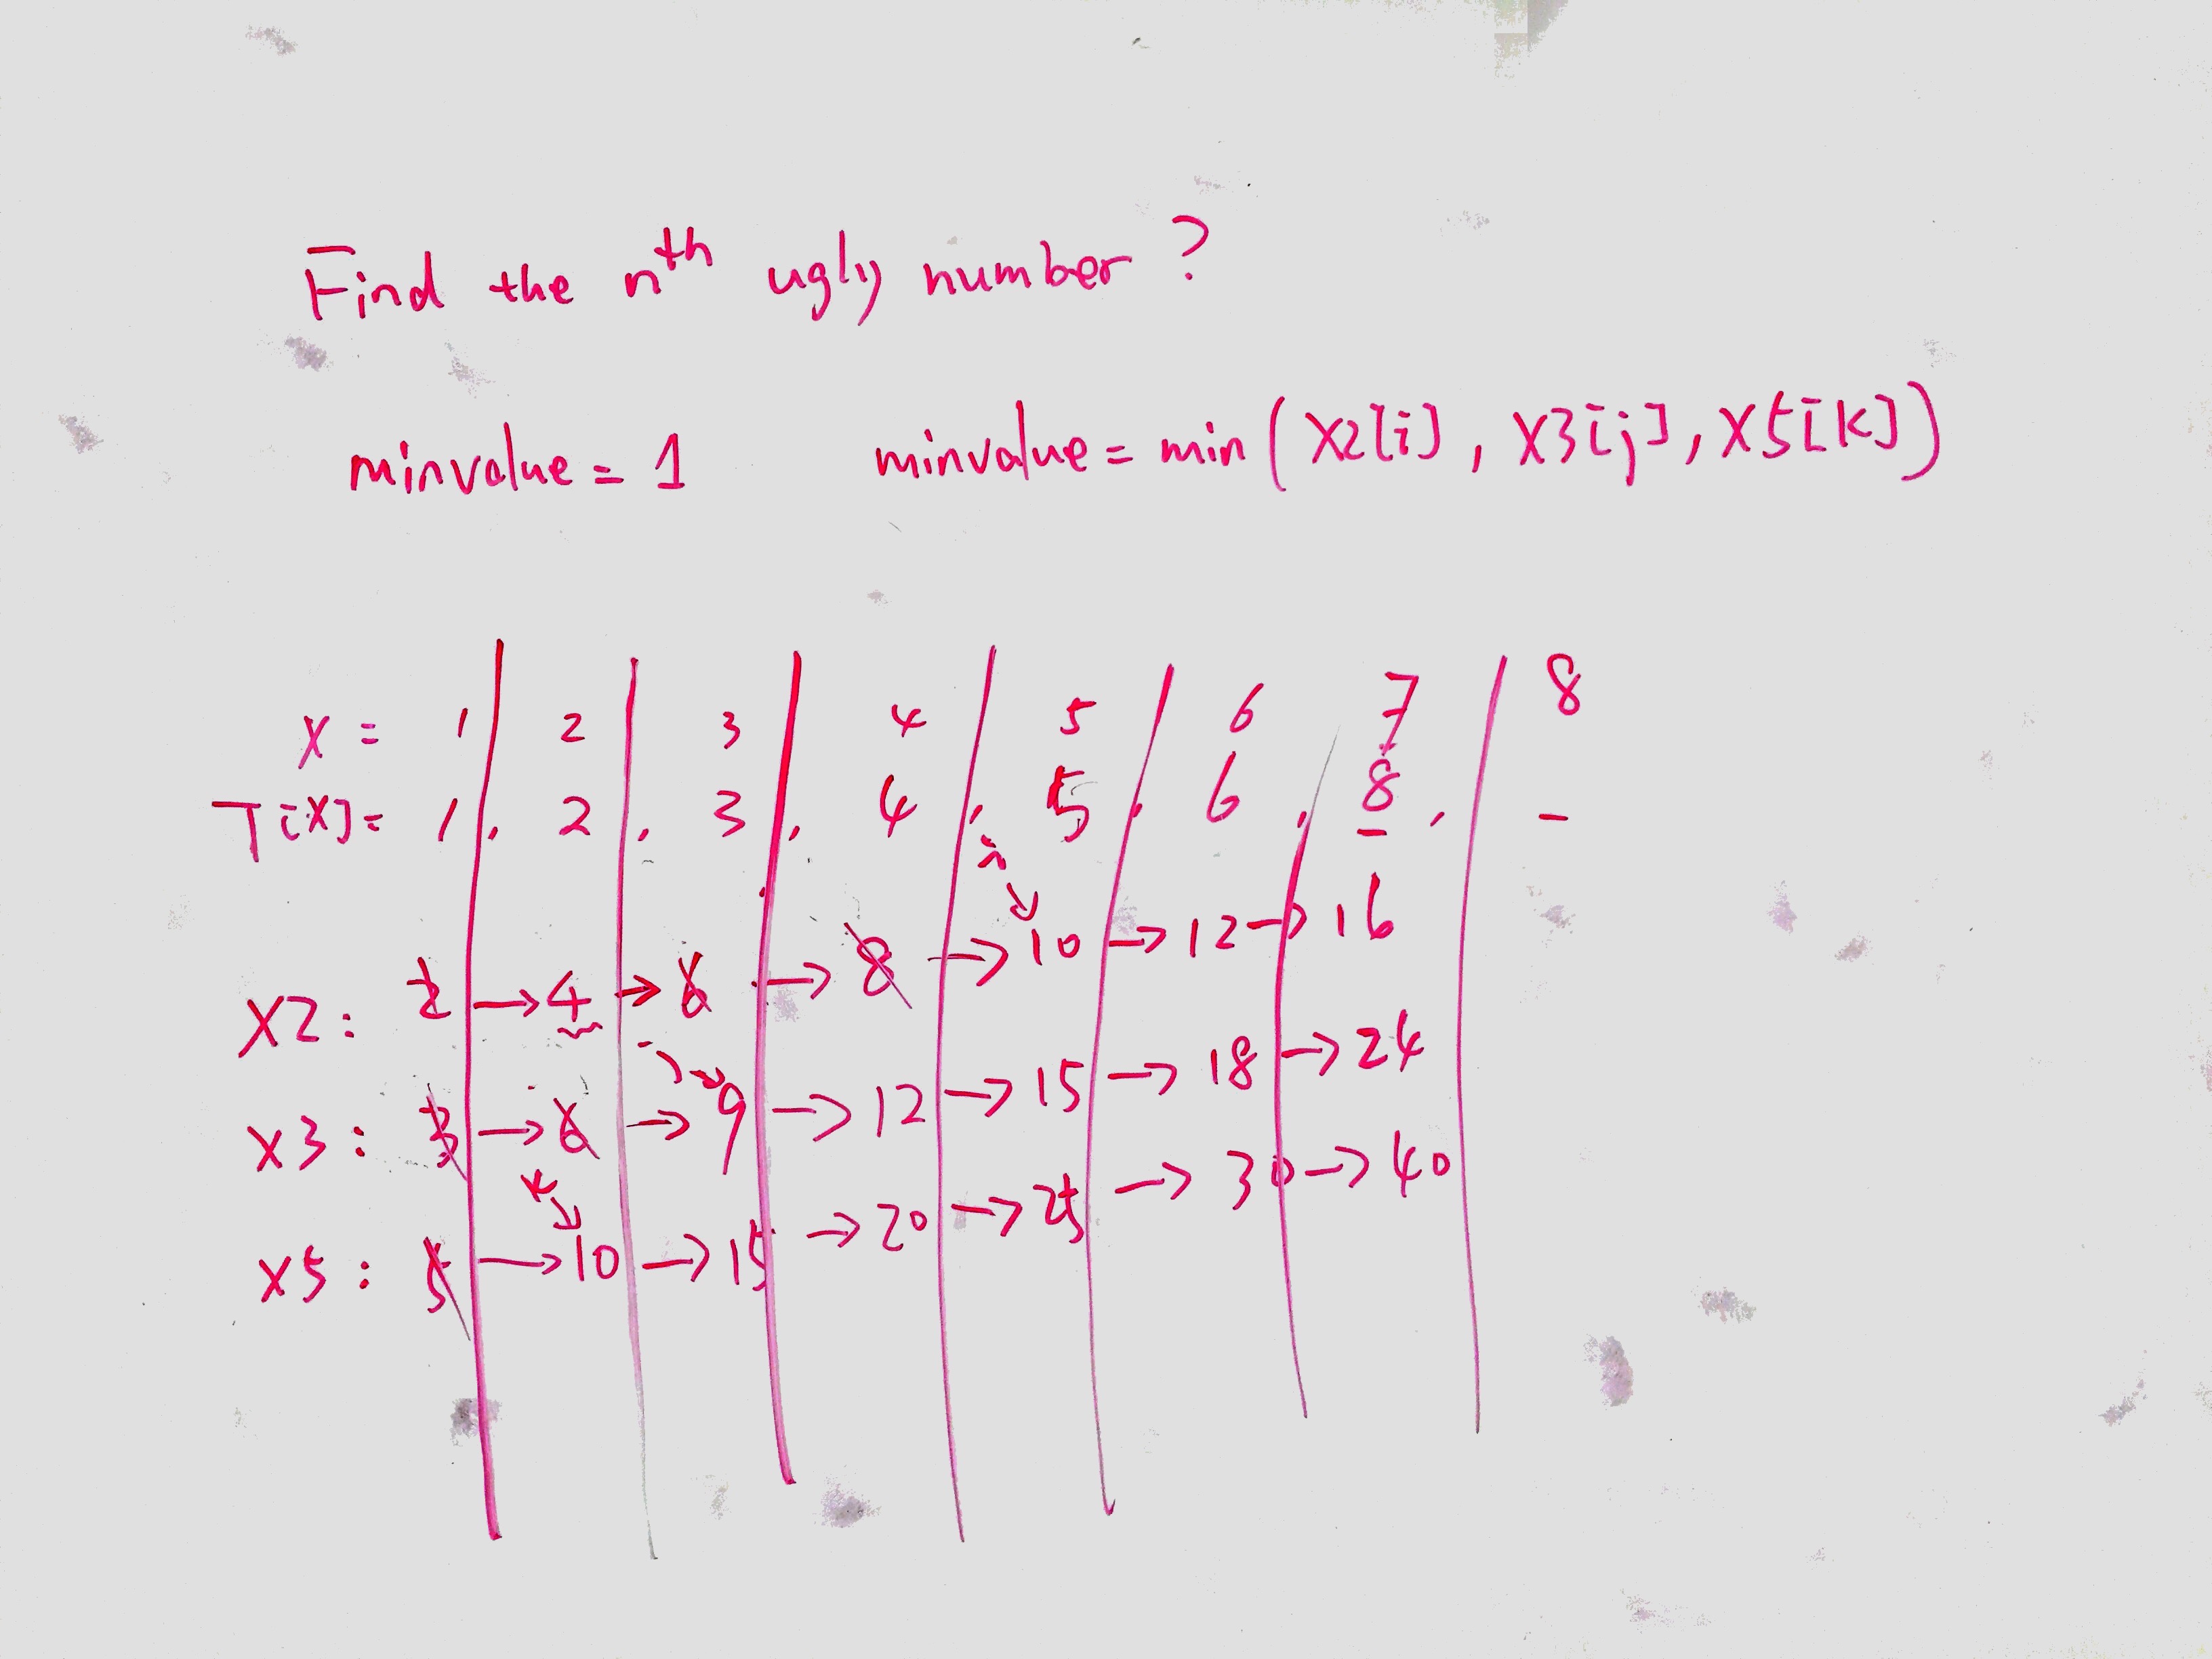 Find the nth ugly number ?
minvalue = 1 minvalue = min ( X2[i] , X3[j] , X5[k] )
X = 1 2 3 4 5 6 7 8
T[X] = 1 , 2 , 3 , 4 , 5 , 6 , 8 , -
i
X2 : 2 → 4 → 6 → 8 → 10 → 12 → 16
j
X3 : 3 → 6 → 9 → 12 → 15 → 18 → 24
k
X5 : 5 → 10 → 15 → 20 → 25 → 30 → 40